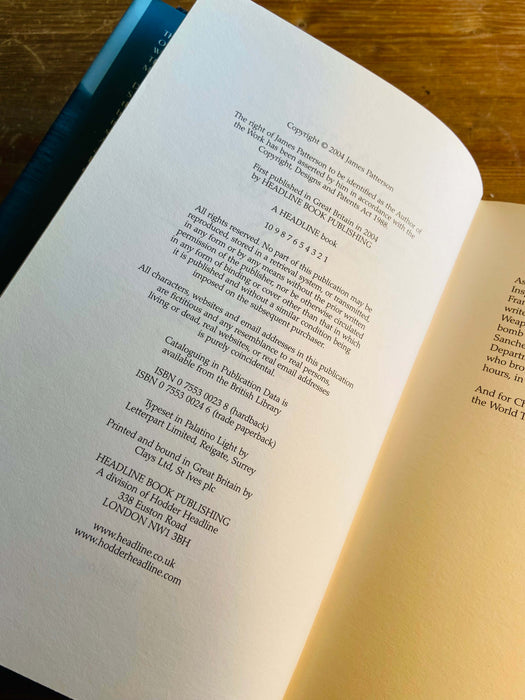 Copyright © 2004 James Patterson
The right of James Patterson to be identified as the Author of
the Work has been asserted by him in accordance with the
Copyright, Designs and Patents Act 1988.
First published in Great Britain in 2004
by HEADLINE BOOK PUBLISHING
A HEADLINE book
10 9 8 7 6 5 4 3 2 1
All rights reserved. No part of this publication may be
reproduced, stored in a retrieval system, or transmitted,
in any form or by any means without the prior written
permission of the publisher, nor be otherwise circulated
in any form of binding or cover other than that in which
it is published and without a similar condition being
imposed on the subsequent purchaser.
All characters, websites and email addresses in this publication
are fictitious and any resemblance to real persons,
living or dead, real websites, or real email addresses
is purely coincidental.
Cataloguing in Publication Data is
available from the British Library
ISBN 0 7553 0023 8 (hardback)
ISBN 0 7553 0024 6 (trade paperback)
Typeset in Palatino Light by
Letterpart Limited, Reigate, Surrey
Printed and bound in Great Britain by
Clays Ltd, St Ives plc
HEADLINE BOOK PUBLISHING
A division of Hodder Headline
338 Euston Road
LONDON NW1 3BH
www.headline.co.uk
www.hodderheadline.com
As
Ins
Fra
write
Weap
bomb
Sanche
Departm
who bro
hours, in
And for Ch
the World T